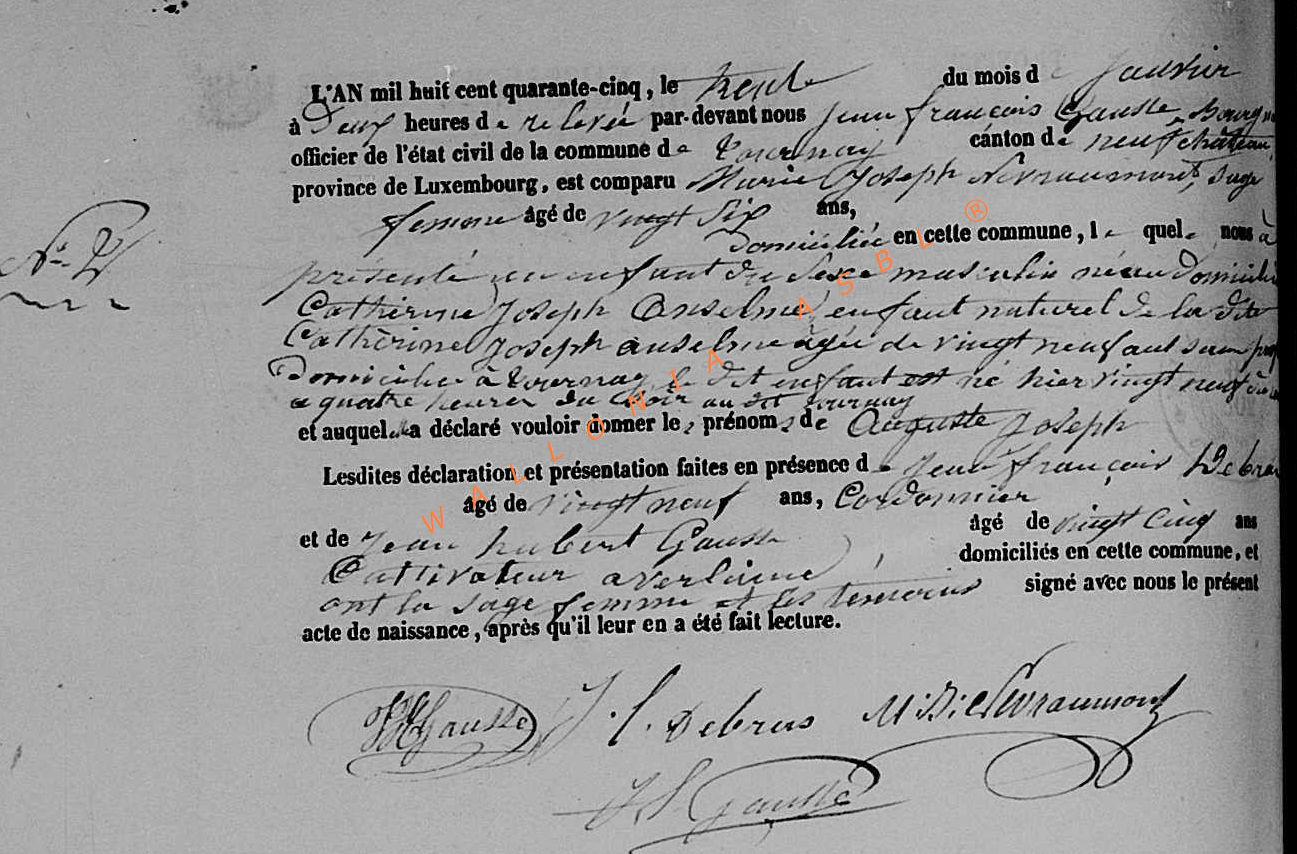 L'AN mil huit cent quarante-cinq, le trente du mois de janvier
à Deux heures de relevée par-devant nous jean françois Gausse, Bourgm
officier de l'état civil de la commune de tournay canton de neufchateau,
province de Luxembourg, est comparu Marie Joseph Nevraumont, Sage
femme âgé de vingt Six ans,
N° 2
domiciliée en cette commune, le quel nous à
présenté un enfant du Sexe masculin né au domicile
Catherine Joseph Anselme, enfant naturel de la dite
Cathérine Joseph anselme agée de vingt neuf ans sans
Domiciliée à tournay le dit enfant est né hier vingt neuf du
a quatre heures du soir au dit tournay
et auquel a déclaré vouloir donner les prénoms de Auguste Joseph
Lesdites déclaration et présentation faites en présence de Jean françois Debrus
âgé de vingt neuf ans, Cordonnier
et de jean hubert Gausse âgé de vingt Cinq ans
Cultivateur a verlaine domiciliés en cette commune, et
ont la Sage femme et les temoins signé avec nous le présent
acte de naissance, après qu'il leur en a été fait lecture.
Gausse J. f. Debrus M. J. Nevraumont
J f Gausse
WALLONIA ASBL ®